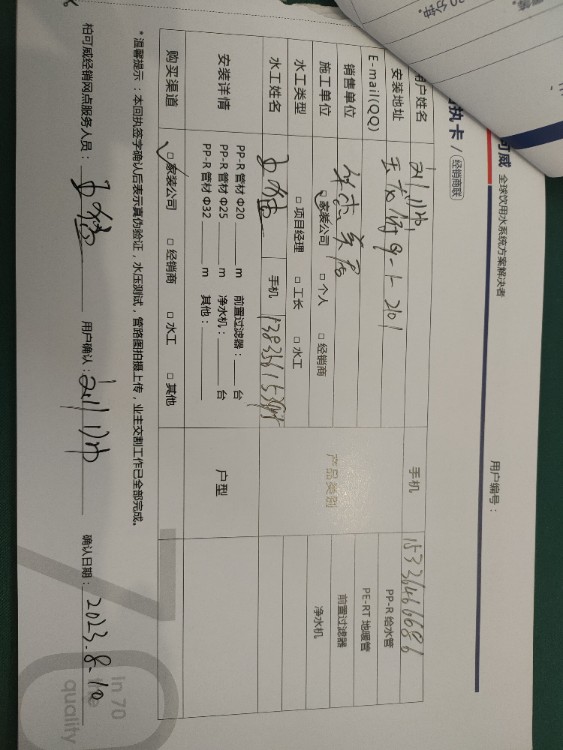 可威 全球饮用水系统方案解决者
执卡 / 经销商联
用户编号：
户姓名
手机 15336466686
安装地址 9-1-201
PP-R 给水管
E-mail(QQ)
PE-RT 地暖管
销售单位
产品类别
前置过滤器
施工单位 □家装公司 □个人 □经销商
净水机
水工类型 □项目经理 □工长 □水工
水工姓名
手机
安装详情
PP-R 管材 Φ20 m 前置过滤器： 台
PP-R 管材 Φ25 m 净水机： 台
PP-R 管材 Φ32 m 其他：
户型
购买渠道 □家装公司 □经销商 □水工 □其他
*温馨提示：本回执签字确认后表示真伪验证，水压测试，管路图拍摄上传，业主交割工作已全部完成。
柏可威经销网点服务人员：
用户确认：
确认日期：2023.8.10
in 70
quality